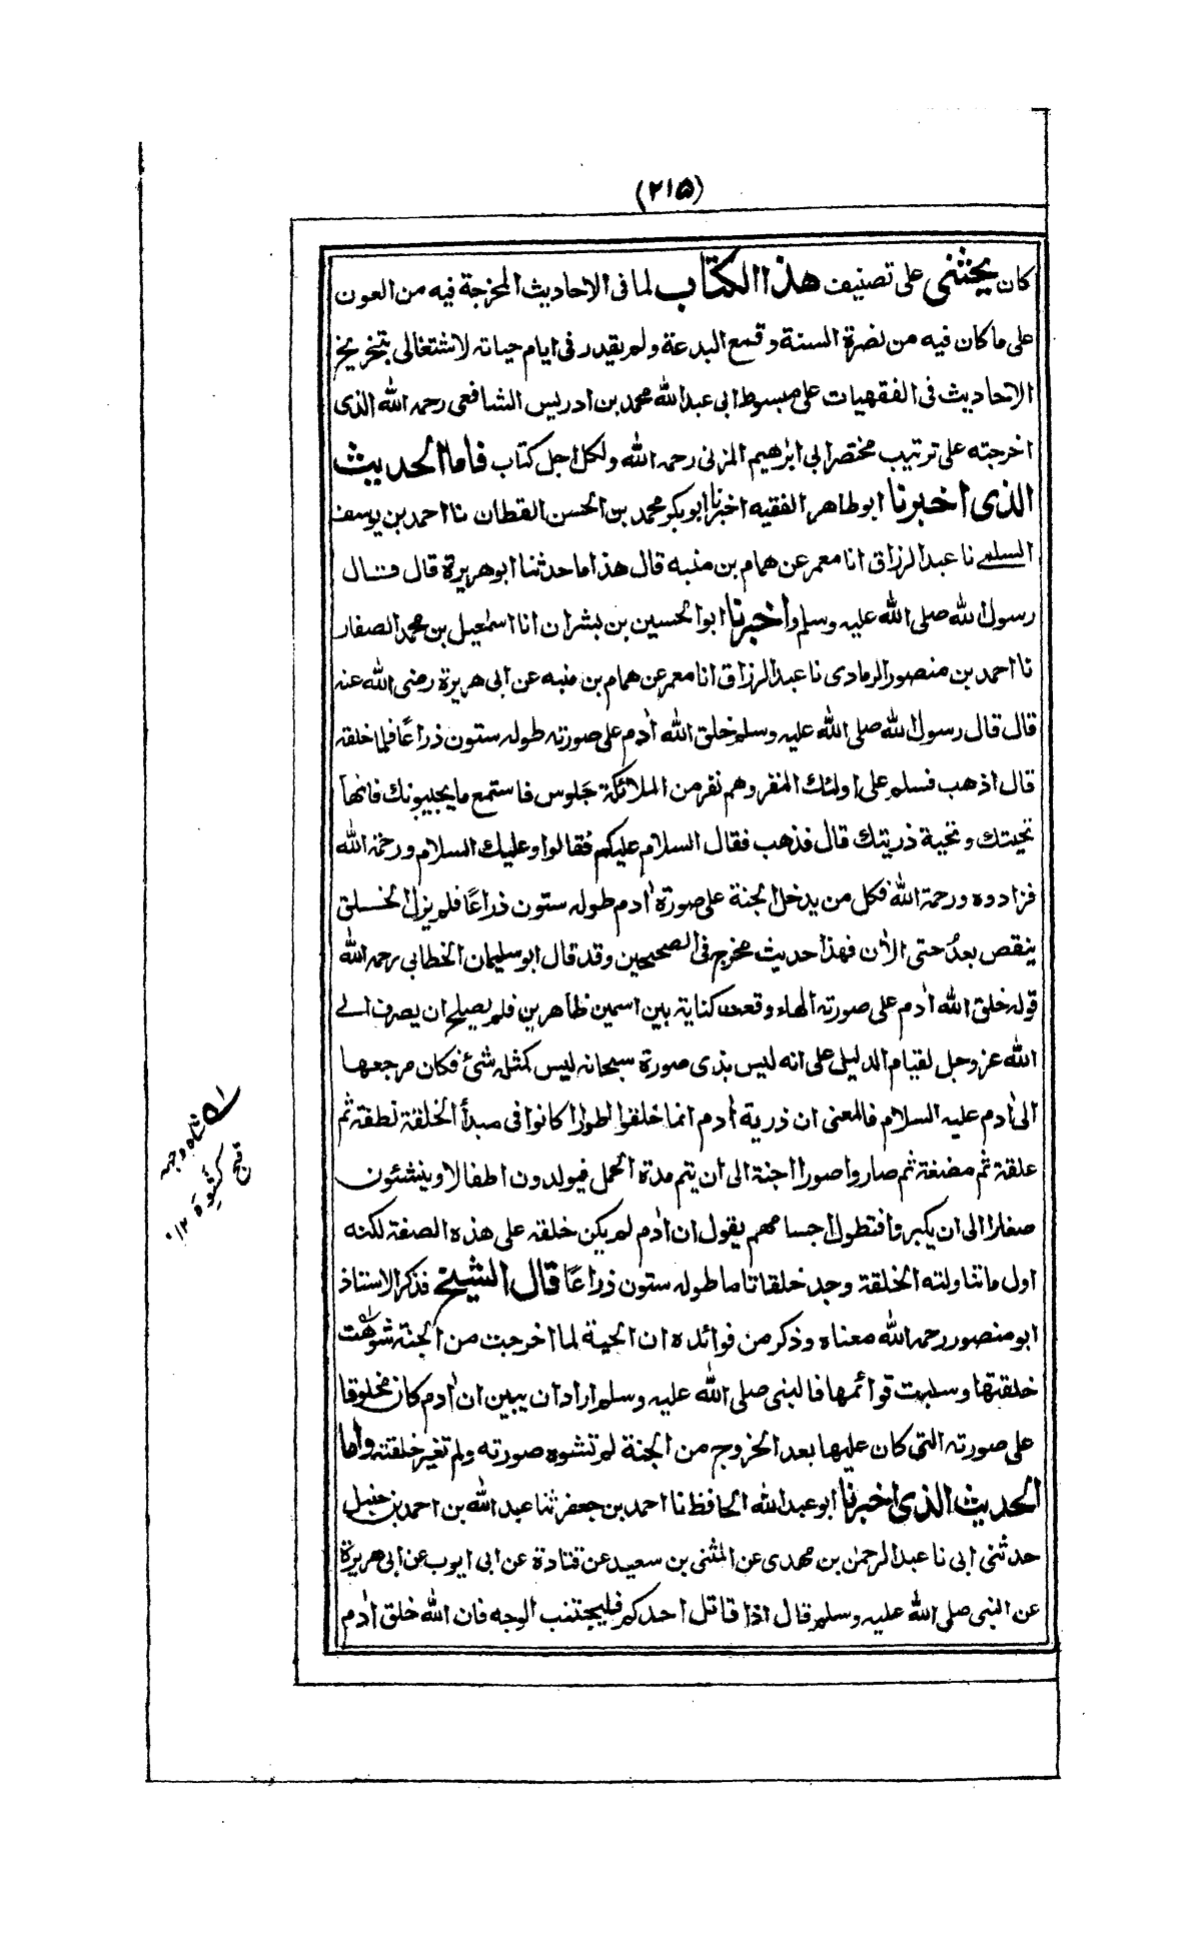 (۲۱۵)
كان يحثنى على تصنيف هذا الكتاب لما فى الاحاديث المخرجة فيه من العون
على ما كان فيه من نصرة السنة وقمع البدعة ولم يقدر فى ايام حياته لاشتغالى بتخريج
الاحاديث فى الفقهيات على مبسوط ابى عبد الله محمد بن ادريس الشافعى رحمه الله الذى
اخرجته على ترتيب مختصر ابى ابراهيم المزنى رحمه الله ولكل اجل كتاب فاما الحديث
الذى اخبرنا ابو طاهر الفقيه اخبرنا ابو بكر محمد بن الحسن القطان نا احمد بن يوسف
السلمے نا عبد الرزاق انا معمر عن همام بن منبه قال هذا ما حدثنا ابو هريرة قال قال
رسول الله صلى الله عليه وسلم واخبرنا ابو الحسين بن بشران انا اسمٰعيل بن محمد الصفار
نا احمد بن منصور الرمادى نا عبد الرزاق انا معمر عن همام بن منبه عن ابى هريرة رضى الله عنه
قال قال رسول الله صلى الله عليه وسلم خلق الله اٰدم على صورته طوله ستون ذراعًا فلما خلقه
قال اذهب فسلم على اولئك النفر وهم نفر من الملائكة جلوس فاستمع ما يجيبونك فانها
تحيتك وتحية ذريتك قال فذهب فقال السلام عليكم فقالوا وعليك السلام ورحمة الله
فزادوه ورحمة الله فكل من يدخل الجنة على صورة اٰدم طوله ستون ذراعًا فلم يزل الخلق
ينقص بعدُ حتى الاٰن فهذا حديث مخرج فى الصحيحين وقد قال ابو سليمان الخطابى رحمه الله
قوله خلق الله اٰدم على صورته الهاء وقعت كناية بين اسمين ظاهرين فلم يصلح ان يصرف الے
الله عز وجل لقيام الدليل على انه ليس بذى صورة سبحانه ليس كمثله شئ فكان مرجعها
الى اٰدم عليه السلام فالمعنى ان ذرية اٰدم انما خلقوا اطوارا كانوا فى مبدأ الخلقة نطفة ثم
علقة ثم مضغة ثم صاروا صورا اجنة الى ان يتم مدة الحمل فيولدون اطفالا وينشئون
صغارا الى ان يكبروا فتطول اجسامهم يقول ان اٰدم لم يكن خلقه على هذه الصفة لكنه
اول ما تناولته الخلقة وجد خلقا تاما طوله ستون ذراعًا قال الشيخ فذكر الاستاذ
ابو منصور رحمه الله معناه وذكر من فوائده ان الحية لما اخرجت من الجنة شوهت
خلقتها وسلبت قوائمها فالنبى صلى الله عليه وسلم اراد ان يبين ان اٰدم كان مخلوقا
على صورته التى كان عليها بعد الخروج من الجنة لم تشوه صورته ولم تغير خلقته واما
الحديث الذى اخبرنا ابو عبد الله الحافظ نا احمد بن جعفر ثنا عبد الله بن احمد بن حنبل
حدثنى ابى نا عبد الرحمٰن بن مهدى عن المثنى بن سعيد عن قتادة عن ابى ايوب عن ابى هريرة
عن النبى صلى الله عليه وسلم قال اذا قاتل احدكم فليجتنب الوجه فان الله خلق اٰدم